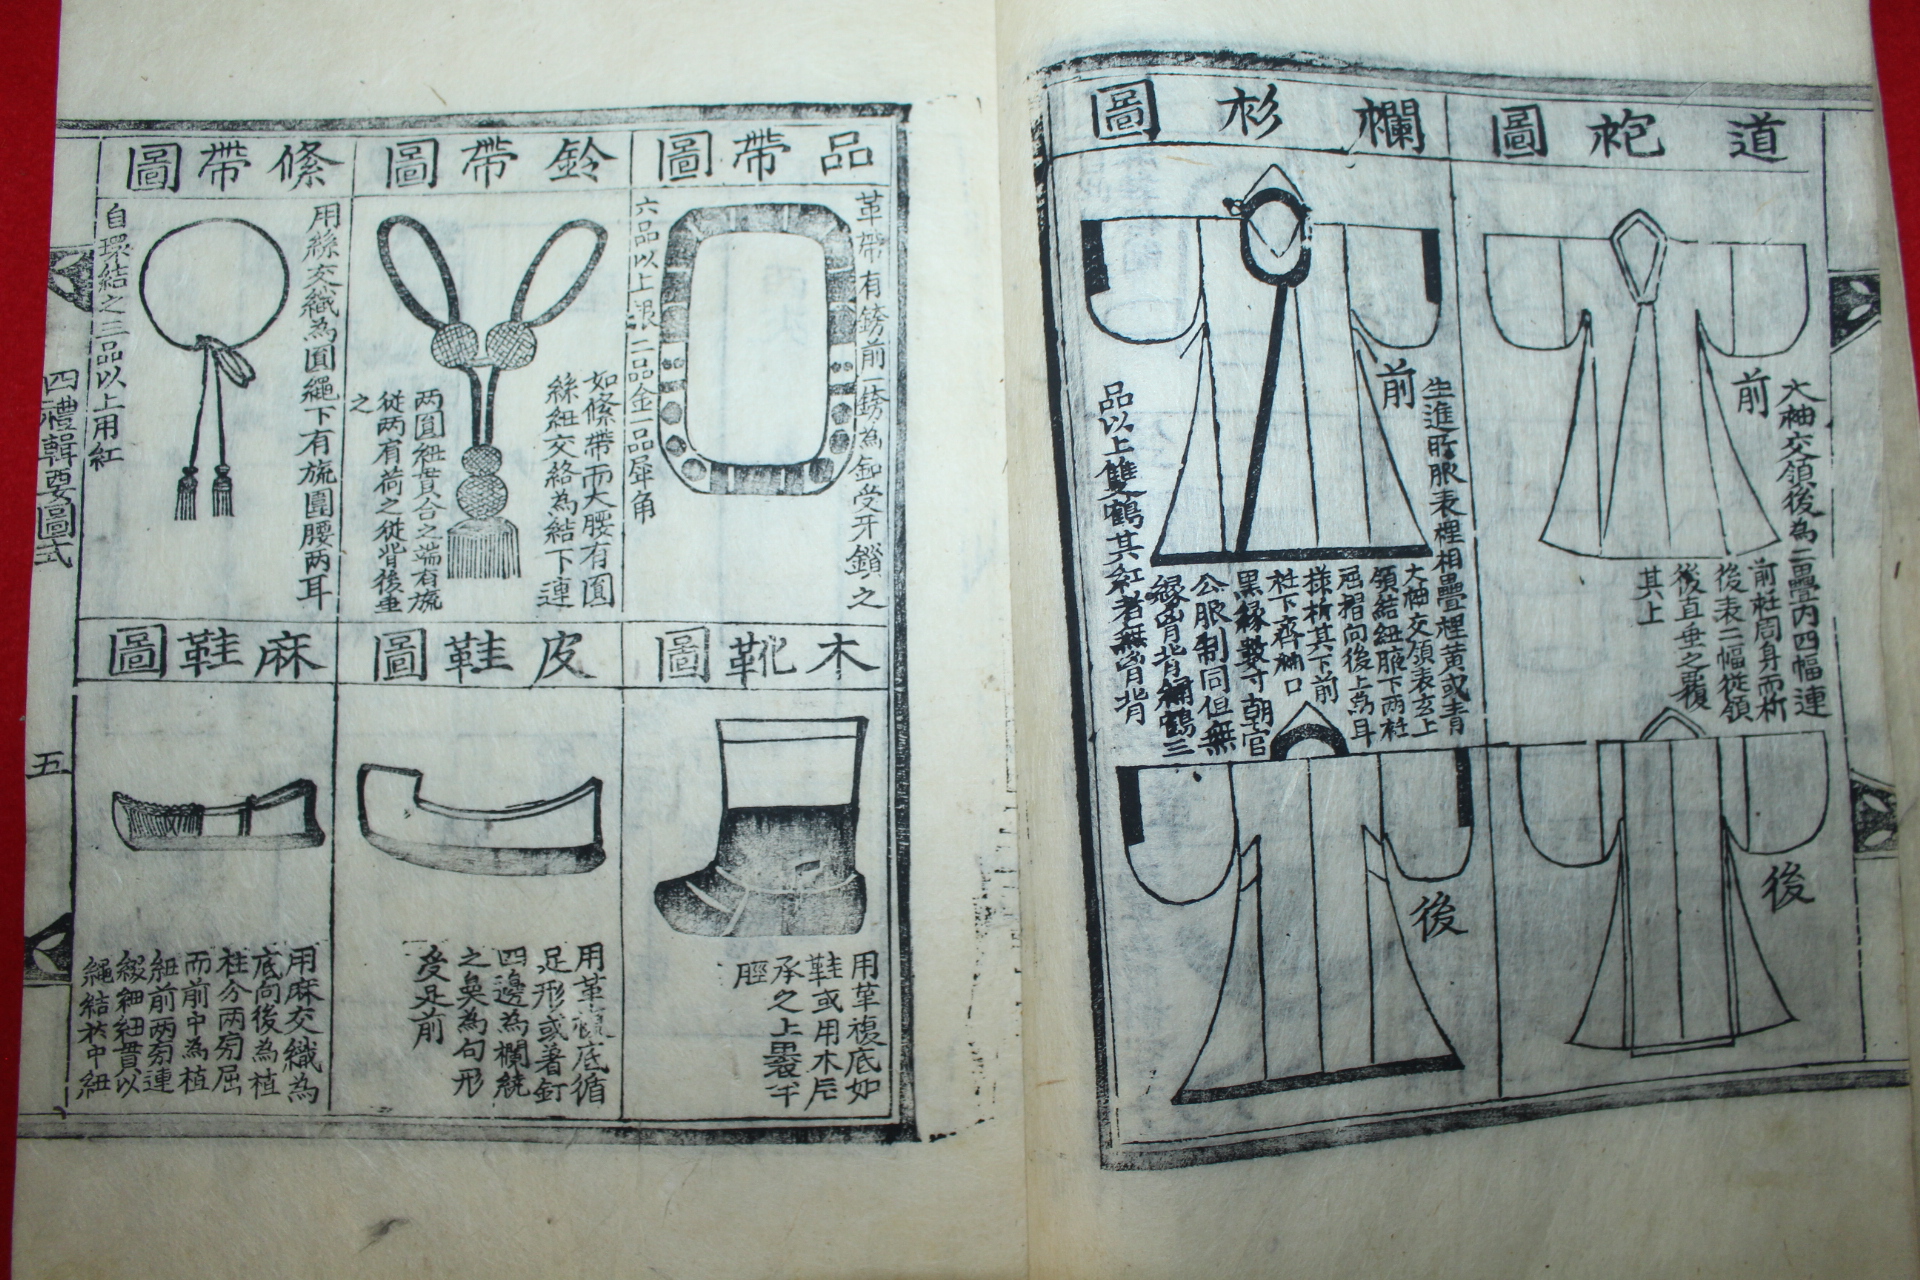 道袍圖
前
大袖交領後為二疊內四幅連
前衽周身而析
後表二幅從領
後直垂之覆
其上
後
欄衫圖
前
生進所服表裡相疊裡黃或青
大袖交領表玄上
領結紐腋下兩衽
屈摺向後上為耳
樣析其下前
衽下齊袖口
黑緣數寸朝官
公服制同但無
緣胷背綉鶴三
品以上雙鶴其紅者無胷背
後
品帶圖
革帶有銙前一銙為釦受牙鎖之
六品以上銀二品金一品犀角
鈴帶圖
如絛帶而大腰有圓
絲紐交絡為結下連
两圓紐貫合之端有旒
從两肩荷之從背後垂
之
絛帶圖
用絲交織為圓繩下有旒圍腰两耳
自環結之三品以上用紅
木靴圖
用革複底如
鞋或用木辰
承之上裹半
脛
皮鞋圖
用革複底循
足形或著釘
四邊為欄繞
之奐為句形
受足前
麻鞋圖
用麻交織為
底向後為植
柱今两旁屈
而前中為植
紐前两旁連
綴細紐貫以
繩結於中紐
四禮輯要圖式
五